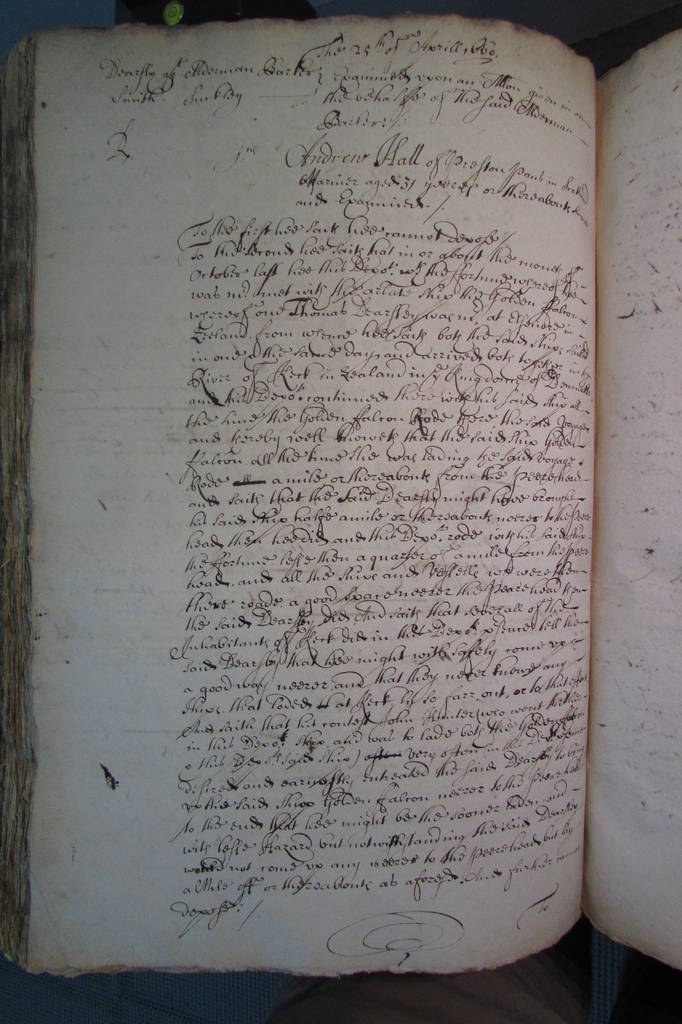 The 25th of Aprill 1660.
Dearsly agt Alderman Barker
Smith. Suckley
Examined upon an Allon given in on
the behalfe of the said Alderman
Barker:/
Andrew Hall of Preston Pans in
Mariner aged 31 yeeres or thereabouts
and Examined./
To the first hee saith hee cannot depose/
To the second hee saith that in or about the moneth of
October last hee this Depot wth the ffortune whereof hee
was mr. met with the arlate ship the Golden ffalcon
whereof one Thomas Dearsley was mr. at
Zeeland from whence hee saith both the said ships sailed
in one & the same day and arrived both together in the
River of in Zealand in ye Kingdome of Denmarke
and this Depot continued there with his said ship all
the time the Golden ffalcon Rode there the said Voyage
and thereby well knoweth that the said ship Golden
ffalcon all the time she was lading the said voyage
Rode a mile or thereabouts from the Peerehead
and saith that the said Dearsly might have brought
his said ship halfe a mile or thereabouts neerer to the Peere
head then hee did and this Depot rode with his said ship
the ffortune lesse then a quarter of a mile from the Peere
head, and all the ships and Vessells wch were then
there roade a good space neerer the Pearehead then
the said Dearsly did And saith that severall of the
Inhabitants of did in this Depots presence tell the
said Dearsly that hee might with safety come up
a good way neerer and that they never knewe any
ships that loded at soe farr out, or to that effect
And saith that his contest John Hunter (who went
in this Depots ship and was to lade both the Golden ffalcon
& this Depots said ship) very often in this Depots
desired and earnestly entreated the said Dearsly to bring
up the said shipp Golden ffalcon neerer to the Peerehead
to the end that hee might be the sooner laden and
with lesse Hazard but notwithstanding the said Dearsly
would not come up any neerer to the Peerehead, but lay
a Mile off or thereabouts as aforesd. And further cannot
depose:/
To